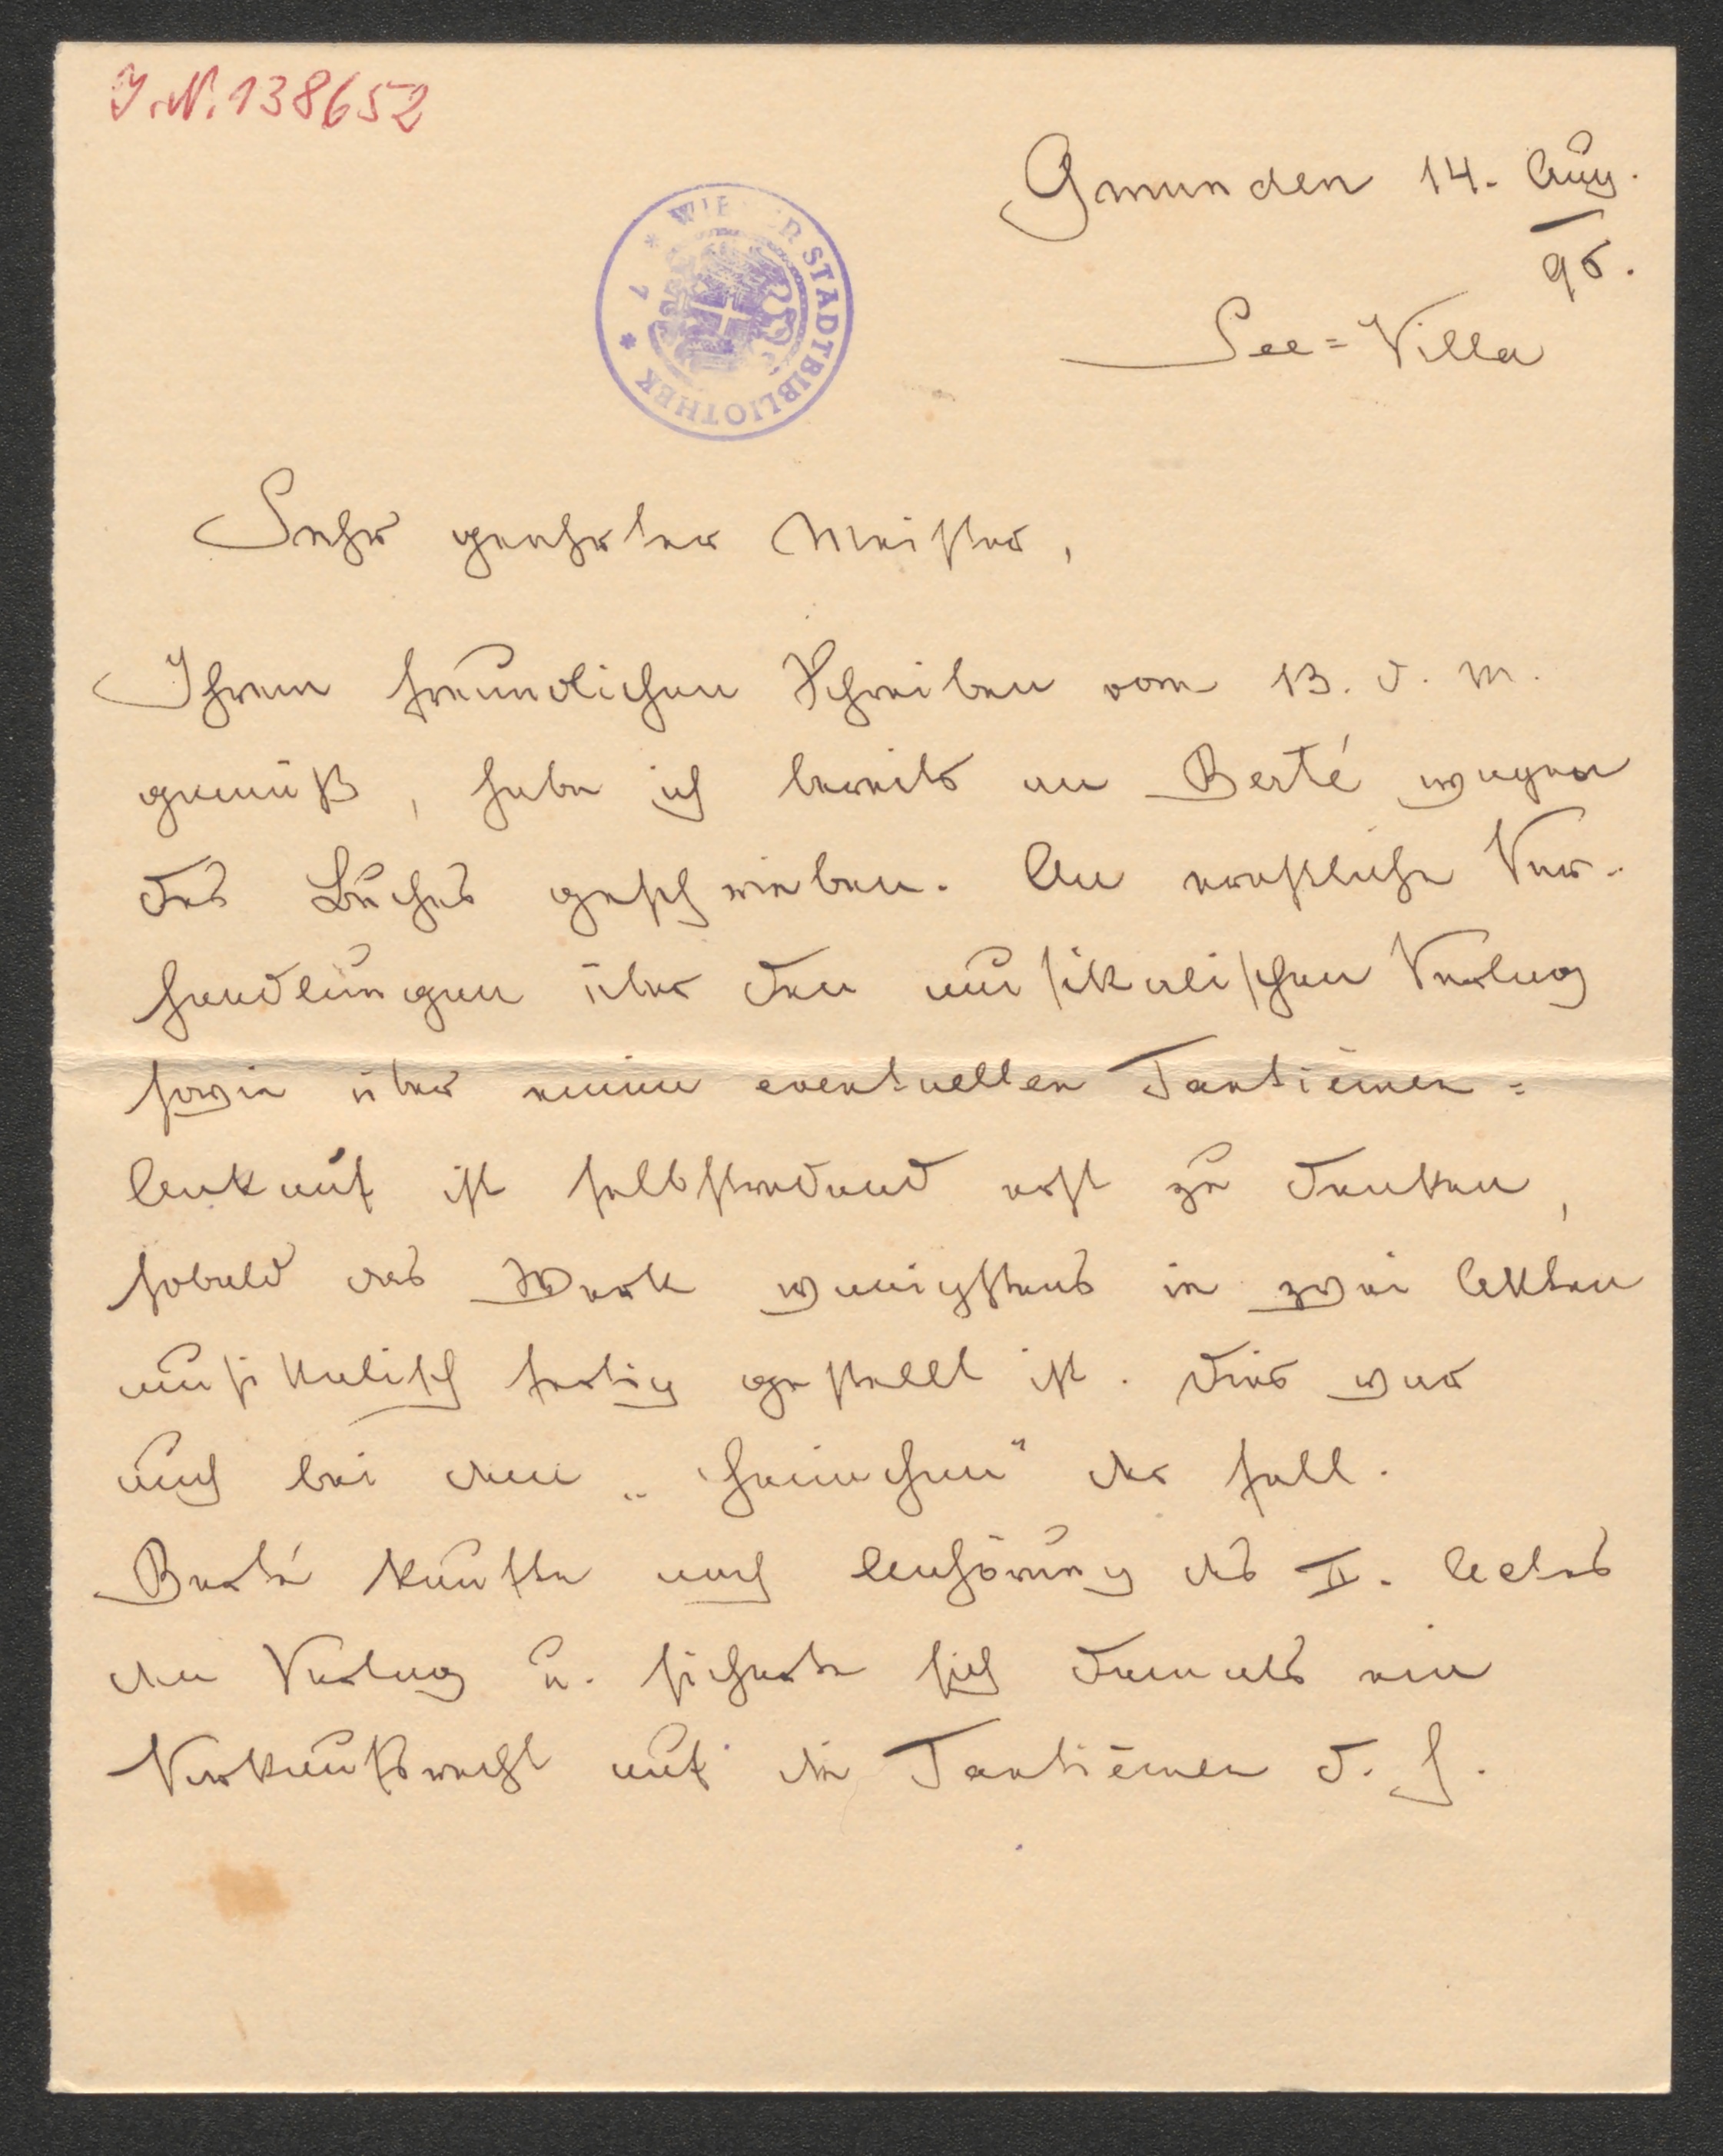 J.N. 138652
Gmunden 14. Aug.
96.
WIENER STADTBIBLIOTHEK
See=Villa
Sehr geehrter Meister,
Ihrem freundlichen Schreiben vom 13. d. M.
gemäß, habe ich bereits an Berté wegen
des Buches geschrieben. An ernstliche Ver-
handlungen über den musikalischen Verlag
sowie über einen eventuellen Tantièmen=
Ankauf ist selbstredend erst zu denken,
sobald das Werk wenigstens in zwei Akten
musikalisch fertig gestellt ist. Dies war
auch bei dem „Heimchen“ der Fall.
Berté kaufte nach Anhörung des II. Actes
den Verlag u. sicherte sich damals ein
Vorkaufsrecht auf die Tantièmen d. h.